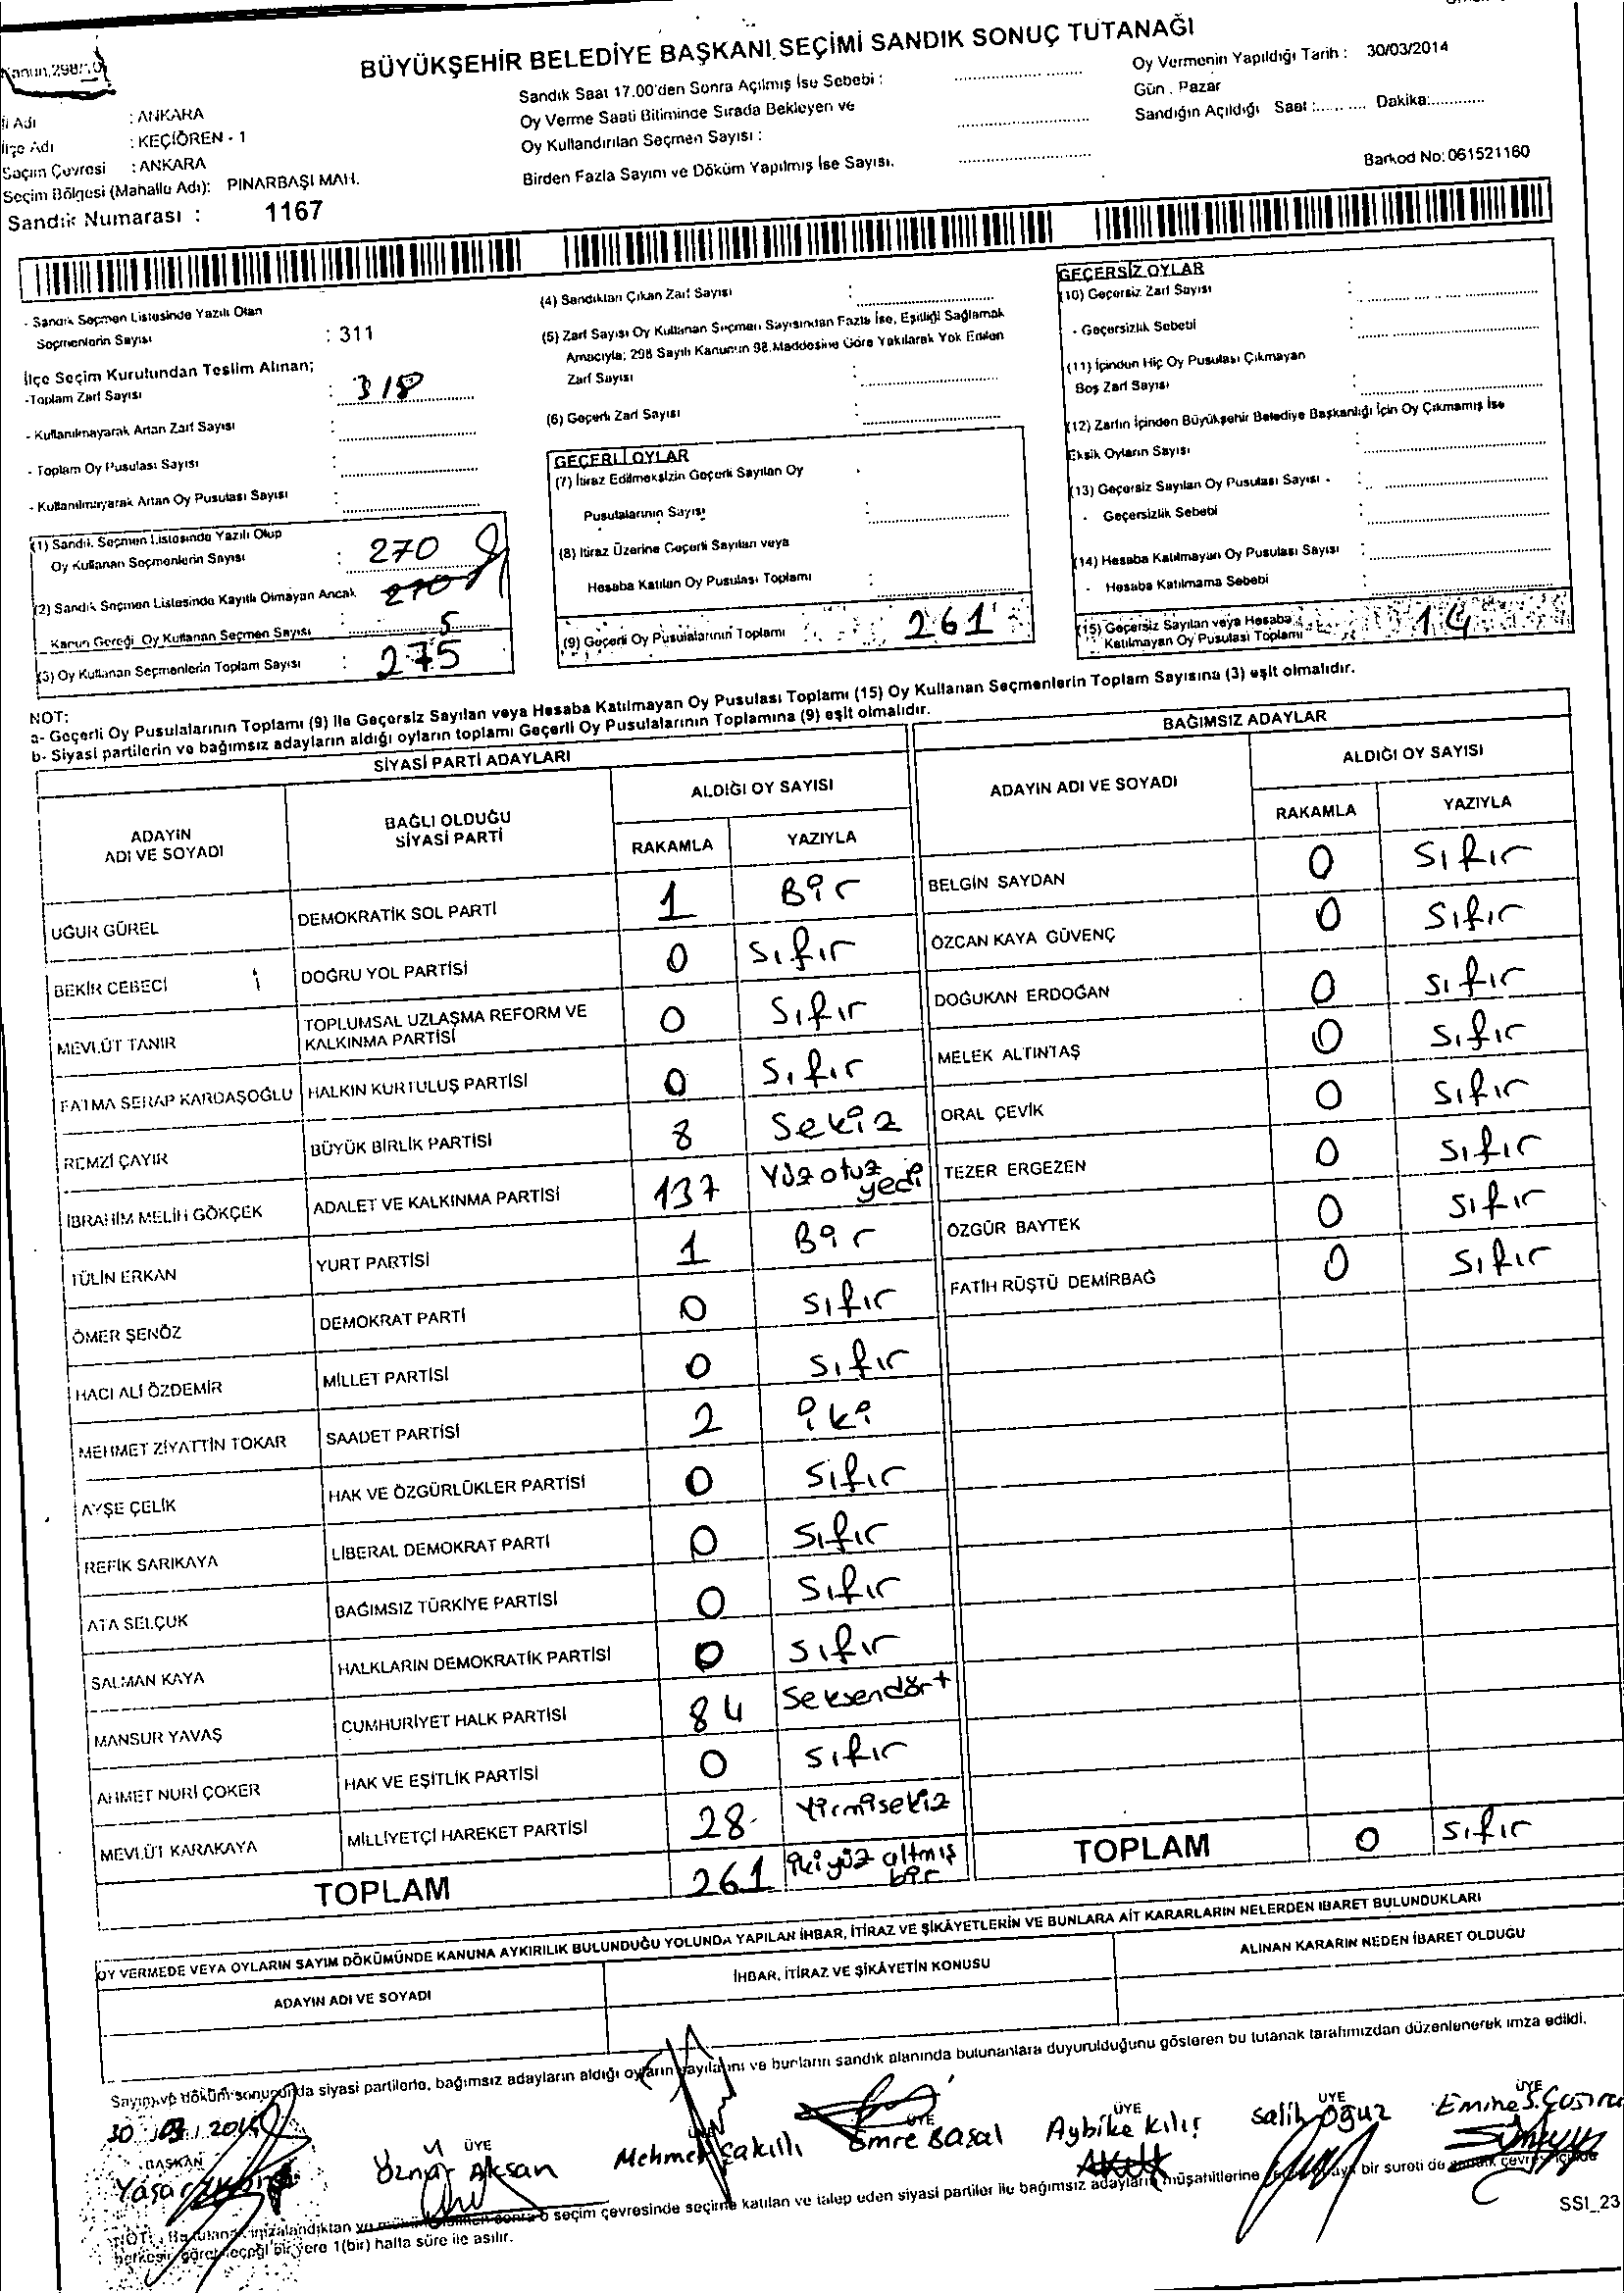 BÜYÜKŞEHİR BELEDİYE BAŞKANI SEÇİMİ SANDIK SONUÇ TUTANAĞI
İl Adı : ANKARA
İlçe Adı : KEÇİÖREN - 1
Seçim Çevresi : ANKARA
Seçim Bölgesi (Mahalle Adı): PINARBAŞI MAH.
Sandık Numarası : 1167
Sandık Saat 17.00'den Sonra Açılmış İse Sebebi :
Oy Verme Saati Bitiminde Sırada Bekleyen ve
Oy Kullandırılan Seçmen Sayısı :
Birden Fazla Sayım ve Döküm Yapılmış İse Sayısı.
Oy Vermenin Yapıldığı Tarih : 30/03/2014
Gün . Pazar
Sandığın Açıldığı Saat :......... Dakika:............
Barkod No: 061521160
- Sandık Seçmen Listesinde Yazılı Olan
Seçmenlerin Sayısı : 311
İlçe Seçim Kurulundan Teslim Alınan;
-Toplam Zarf Sayısı : 318
- Kullanılmayarak Artan Zarf Sayısı :
- Toplam Oy Pusulası Sayısı :
- Kullanılmayarak Artan Oy Pusulası Sayısı :
(1) Sandık Seçmen Listesinde Yazılı Olup
Oy Kullanan Seçmenlerin Sayısı : 270
(2) Sandık Seçmen Listesinde Kayıtlı Olmayan Ancak 270
Kanun Gereği Oy Kullanan Seçmen Sayısı 5
(3) Oy Kullanan Seçmenlerin Toplam Sayısı : 275
(4) Sandıktan Çıkan Zarf Sayısı :
(5) Zarf Sayısı Oy Kullanan Seçmen Sayısından Fazla İse, Eşitliği Sağlamak
Amacıyla; 298 Sayılı Kanunun 98.Maddesine Göre Yakılarak Yok Edilen
Zarf Sayısı :
(6) Geçerli Zarf Sayısı :
GEÇERLİ OYLAR
(7) İtiraz Edilmeksizin Geçerli Sayılan Oy
Pusulalarının Sayısı :
(8) İtiraz Üzerine Geçerli Sayılan veya
Hesaba Katılan Oy Pusulası Toplamı :
(9) Geçerli Oy Pusulalarının Toplamı : 261
GEÇERSİZ OYLAR
(10) Geçersiz Zarf Sayısı :
- Geçersizlik Sebebi :
(11) İçinden Hiç Oy Pusulası Çıkmayan
Boş Zarf Sayısı :
(12) Zarfın İçinden Büyükşehir Belediye Başkanlığı İçin Oy Çıkmamış İse
Eksik Oyların Sayısı :
(13) Geçersiz Sayılan Oy Pusulası Sayısı :
- Geçersizlik Sebebi :
(14) Hesaba Katılmayan Oy Pusulası Sayısı :
- Hesaba Katılmama Sebebi :
(15) Geçersiz Sayılan veya Hesaba
Katılmayan Oy Pusulası Toplamı : 14
NOT:
a- Geçerli Oy Pusulalarının Toplamı (9) ile Geçersiz Sayılan veya Hesaba Katılmayan Oy Pusulası Toplamı (15) Oy Kullanan Seçmenlerin Toplam Sayısına (3) eşit olmalıdır.
b- Siyasi partilerin ve bağımsız adayların aldığı oyların toplamı Geçerli Oy Pusulalarının Toplamına (9) eşit olmalıdır.
SİYASİ PARTİ ADAYLARI
ADAYIN ADI VE SOYADI BAĞLI OLDUĞU SİYASİ PARTİ ALDIĞI OY SAYISI
RAKAMLA YAZIYLA
UĞUR GÜREL DEMOKRATİK SOL PARTİ 1 Bir
BEKİR CEBECİ DOĞRU YOL PARTİSİ 0 Sıfır
MEVLÜT TANIR TOPLUMSAL UZLAŞMA REFORM VE KALKINMA PARTİSİ 0 Sıfır
FATMA SERAP KARDAŞOĞLU HALKIN KURTULUŞ PARTİSİ 0 Sıfır
REMZİ ÇAYIR BÜYÜK BİRLİK PARTİSİ 8 Sekiz
İBRAHİM MELİH GÖKÇEK ADALET VE KALKINMA PARTİSİ 137 Yüz otuz yedi
TÜLİN ERKAN YURT PARTİSİ 1 Bir
ÖMER ŞENÖZ DEMOKRAT PARTİ 0 Sıfır
HACI ALİ ÖZDEMİR MİLLET PARTİSİ 0 Sıfır
MEHMET ZİYATTİN TOKAR SAADET PARTİSİ 2 iki
AYŞE ÇELİK HAK VE ÖZGÜRLÜKLER PARTİSİ 0 Sıfır
REFİK SARIKAYA LİBERAL DEMOKRAT PARTİ 0 Sıfır
ATA SELÇUK BAĞIMSIZ TÜRKİYE PARTİSİ 0 Sıfır
SALMAN KAYA HALKLARIN DEMOKRATİK PARTİSİ 0 Sıfır
MANSUR YAVAŞ CUMHURİYET HALK PARTİSİ 84 Seksendört
AHMET NURİ ÇOKER HAK VE EŞİTLİK PARTİSİ 0 Sıfır
MEVLÜT KARAKAYA MİLLİYETÇİ HAREKET PARTİSİ 28 Yirmisekiz
TOPLAM 261 ikiyüz altmış bir
BAĞIMSIZ ADAYLAR
ADAYIN ADI VE SOYADI ALDIĞI OY SAYISI
RAKAMLA YAZIYLA
BELGİN SAYDAN 0 Sıfır
ÖZCAN KAYA GÜVENÇ 0 Sıfır
DOĞUKAN ERDOĞAN 0 Sıfır
MELEK ALTINTAŞ 0 Sıfır
ORAL ÇEVİK 0 Sıfır
TEZER ERGEZEN 0 Sıfır
ÖZGÜR BAYTEK 0 Sıfır
FATİH RÜŞTÜ DEMİRBAĞ 0 Sıfır
TOPLAM 0 Sıfır
OY VERMEDE VEYA OYLARIN SAYIM DÖKÜMÜNDE KANUNA AYKIRILIK BULUNDUĞU YOLUNDA YAPILAN İHBAR, İTİRAZ VE ŞİKÂYETLERİN VE BUNLARA AİT KARARLARIN NELERDEN İBARET BULUNDUKLARI
ADAYIN ADI VE SOYADI İHBAR, İTİRAZ VE ŞİKÂYETİN KONUSU ALINAN KARARIN NEDEN İBARET OLDUĞU
Sayım ve döküm sonucunda siyasi partilerle, bağımsız adayların aldığı oyların sayılarını ve bunların sandık alanında bulunanlara duyurulduğunu gösteren bu tutanak tarafımızdan düzenlenerek imza edildi.
30 03 2014
BAŞKAN ÜYE ÜYE ÜYE ÜYE ÜYE ÜYE
Yaşar Öznur Aksan Mehmet Çakıllı Emre Başal Aybike Kılıç Salih Oğuz Emine S.
NOT: Bu tutanak imzalandıktan ve sonra o seçim çevresinde seçime katılan ve talep eden siyasi partiler ile bağımsız adayların müşahitlerine bir sureti de sandık çevresi içinde
herkesin göreceği bir yere 1(bir) hafta süre ile asılır.
SSI_23